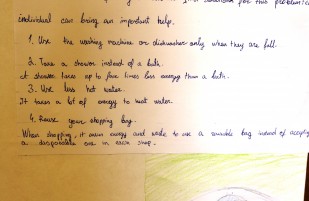 for this problem
individual can bring an important help.
1. Use the washing machine or dishwasher only when they are full.
2. Take a shower instead of a bath.
A shower takes up to five times less energy than a bath.
3. Use less hot water.
It takes a lot of energy to heat water.
4. Reuse your shopping bag.
When shopping, it saves energy and waste to use a reusable bag instead of accepting
a disposable one in each shop.